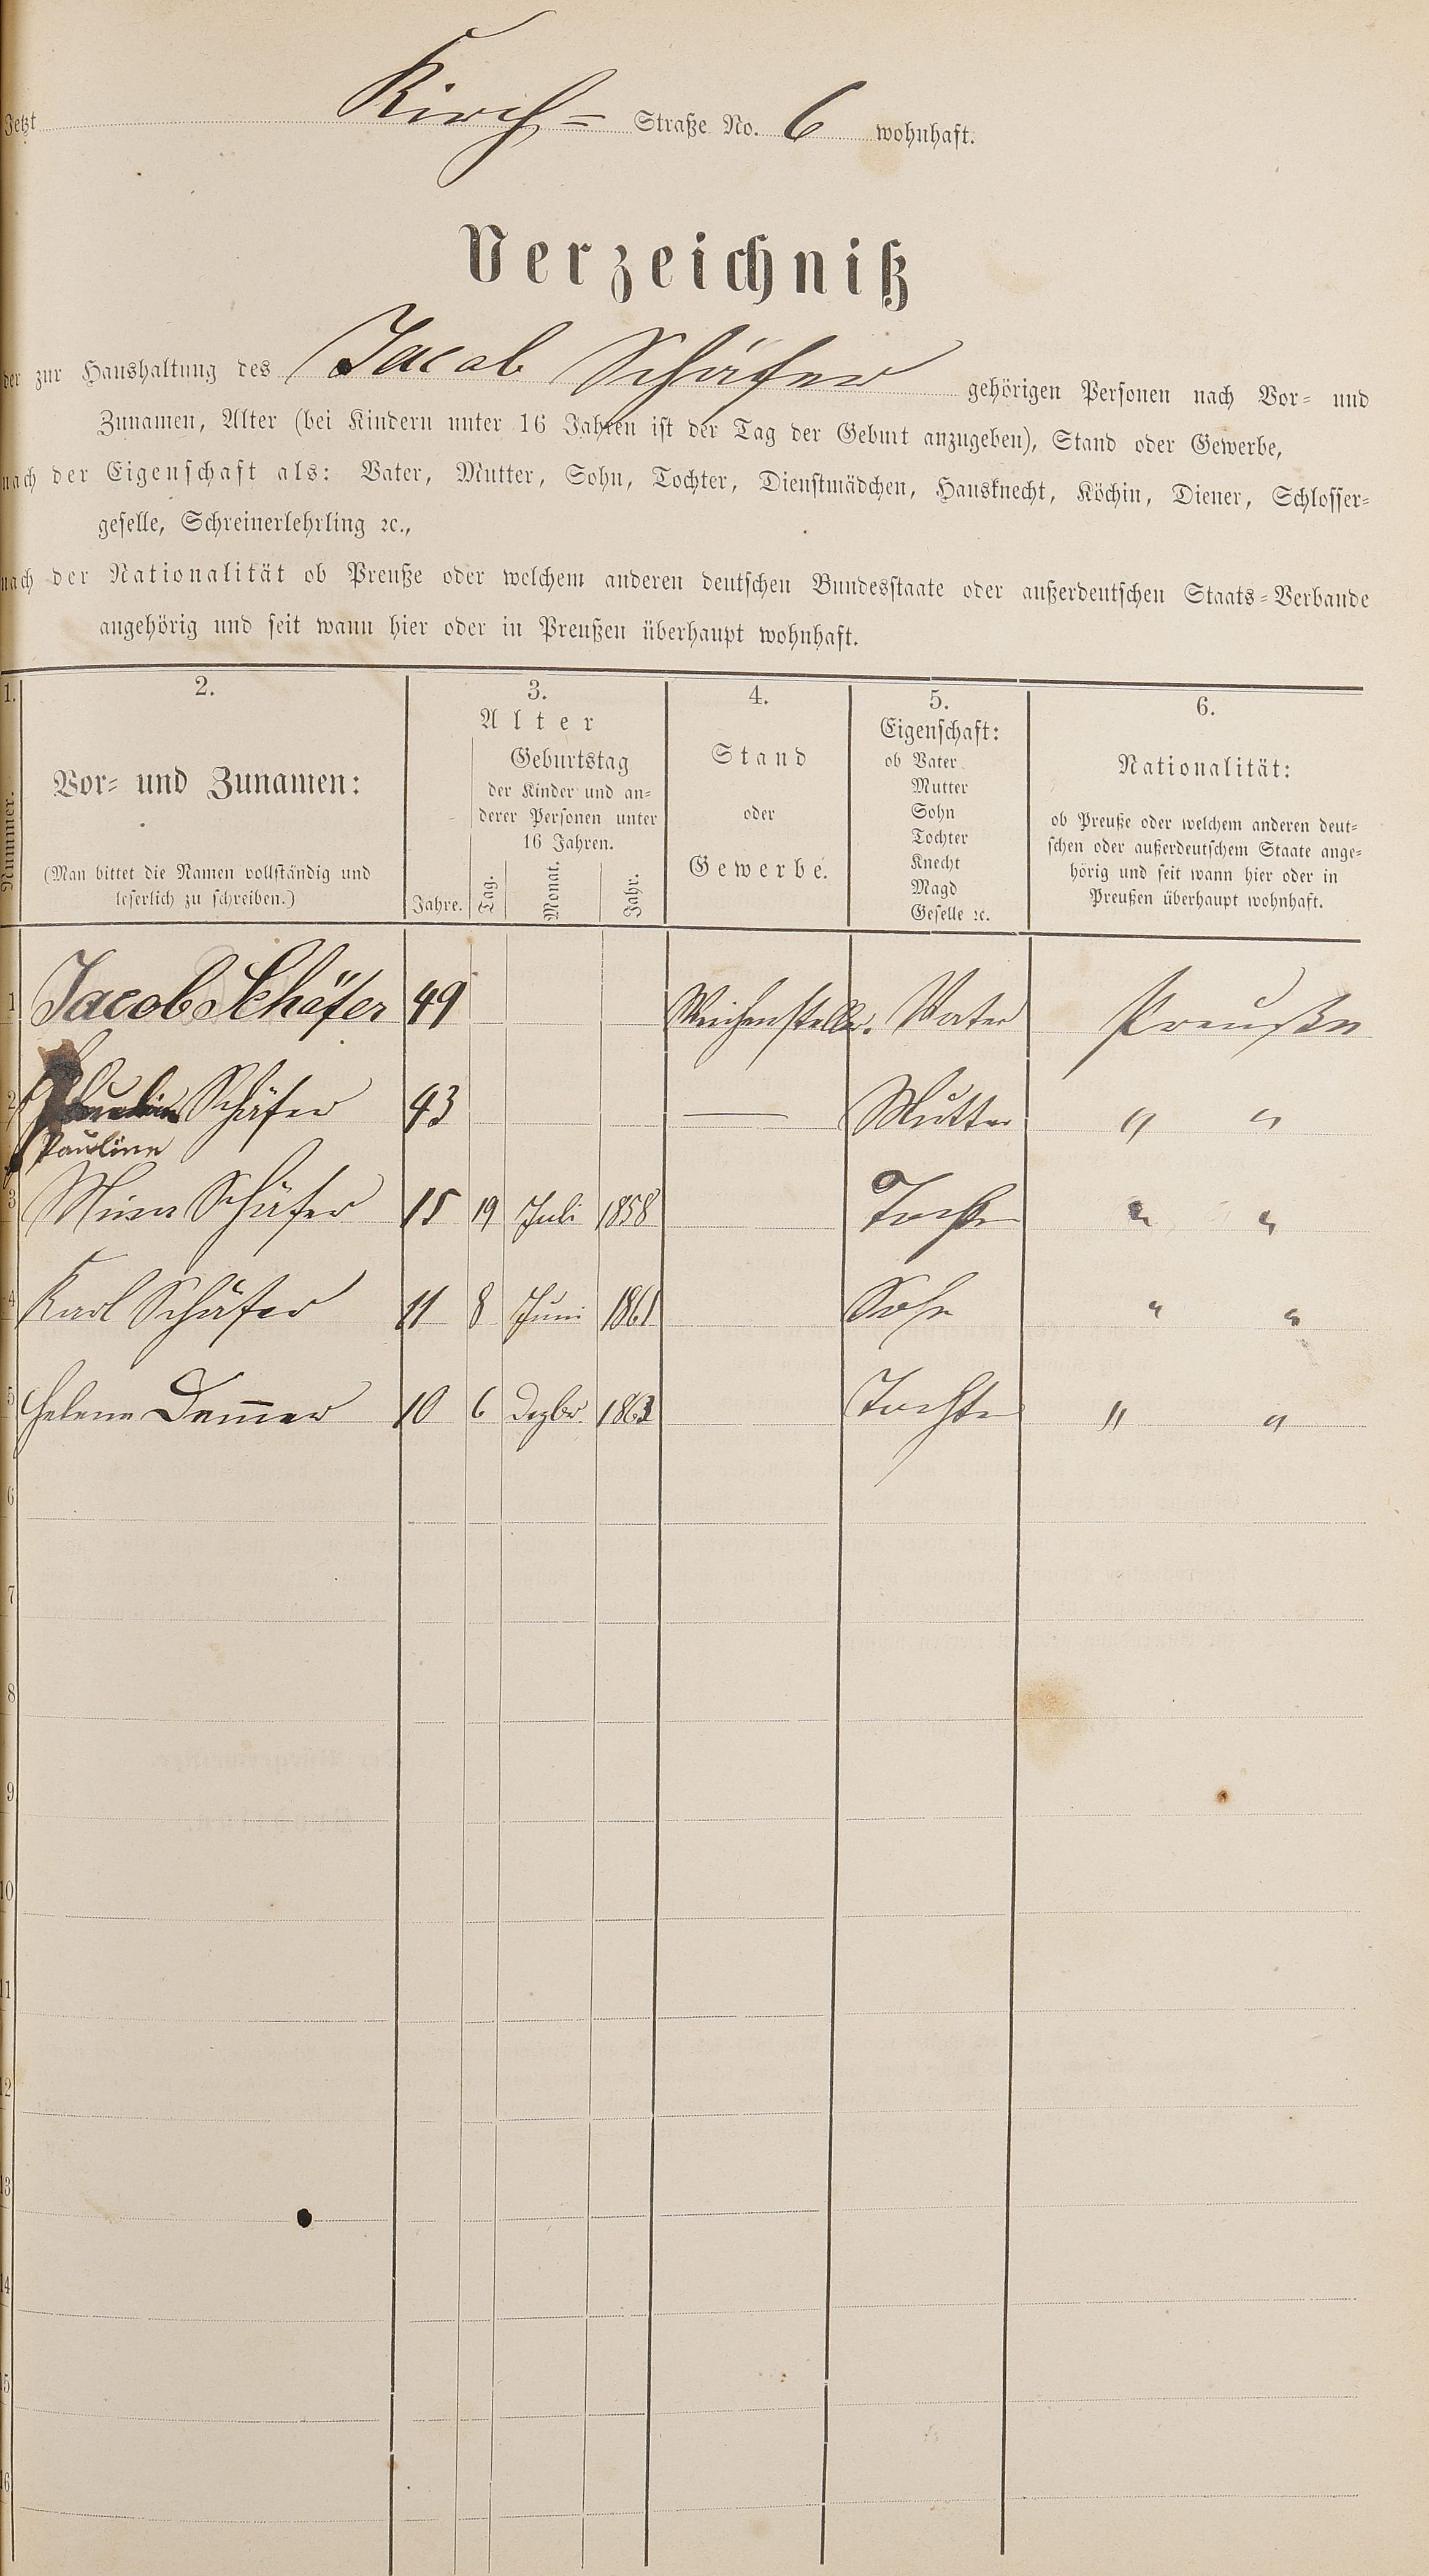 Jetzt Kirch= Straße No. 6 wohnhaft.
Verzeichniß
der zur Haushaltung des Jacob Schäfer gehörigen Personen nach Vor= und
Zunamen, Alter (bei Kindern unter 16 Jahren ist der Tag der Geburt anzugeben), Stand oder Gewerbe,
nach der Eigenschaft als: Vater, Mutter, Sohn, Tochter, Dienstmädchen, Hausknecht, Köchin, Diener, Schlosser=
geselle, Schreinerlehrling ꝛc.,
nach der Nationalität ob Preuße oder welchem anderen deutschen Bundesstaate oder außerdeutschen Staats=Verbande
angehörig und seit wann hier oder in Preußen überhaupt wohnhaft.
1. 2. 3. 4. 5. 6.
Nummer.
Vor= und Zunamen:
(Man bittet die Namen vollständig und
leserlich zu schreiben.)
Alter
Jahre.
Geburtstag
der Kinder und an=
derer Personen unter
16 Jahren.
Tag. Monat. Jahr.
Stand
oder
Gewerbe.
Eigenschaft:
ob Vater
Mutter
Sohn
Tochter
Knecht
Magd
Geselle ꝛc.
Nationalität:
ob Preuße oder welchem anderen deut=
schen oder außerdeutschem Staate ange=
hörig und seit wann hier oder in
Preußen überhaupt wohnhaft.
1 Jacob Schäfer 49 Weichensteller. Vater Preuße
2 Schäfer 43 — Mutter " "
Pauline
3 Mina Schäfer 15 19 Juli 1858 Tochter " "
4 Karl Schäfer 11 8 Juni 1861 Sohn " "
5 Helene Dem̅er 10 6 Dezbr. 1863 Tochter " "
6
7
8
9
10
11
12
13
14
15
16